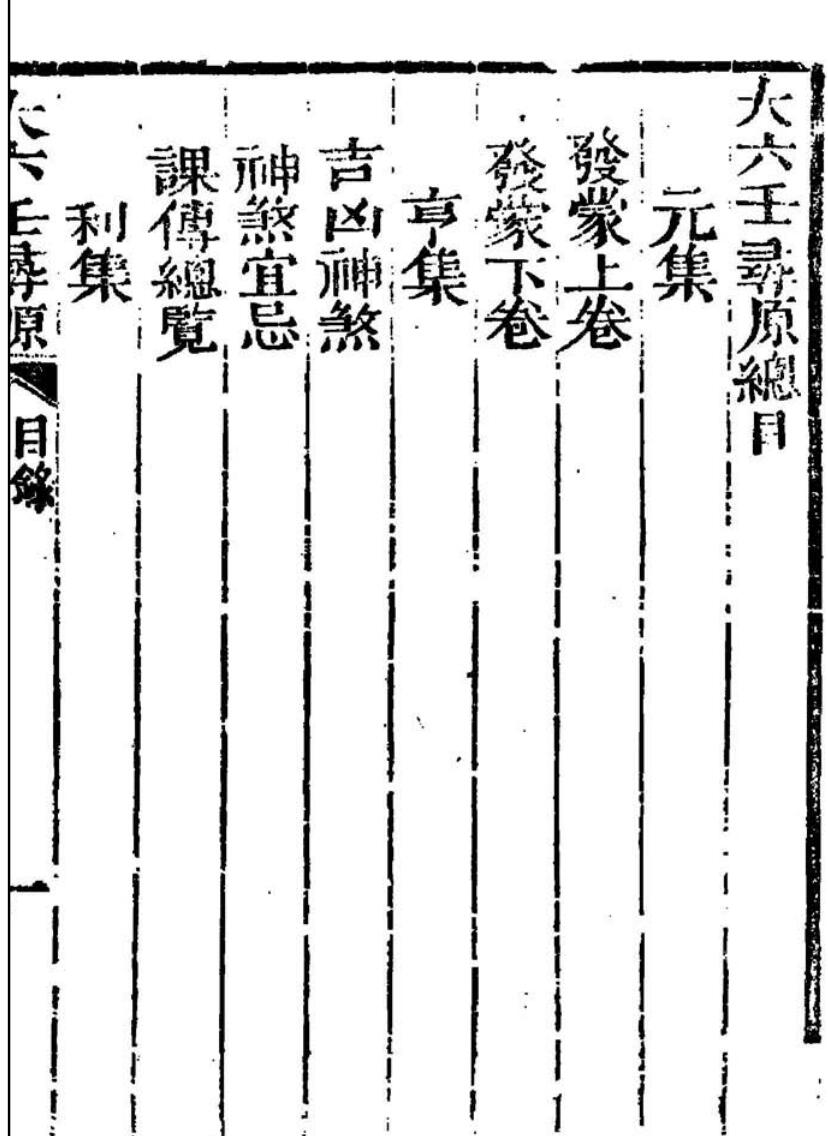 大六壬尋原總目
元集
發蒙上卷
發蒙下卷
亨集
吉凶神煞
神煞宜忌
課傳總覽
利集
大六壬尋原
目錄
一